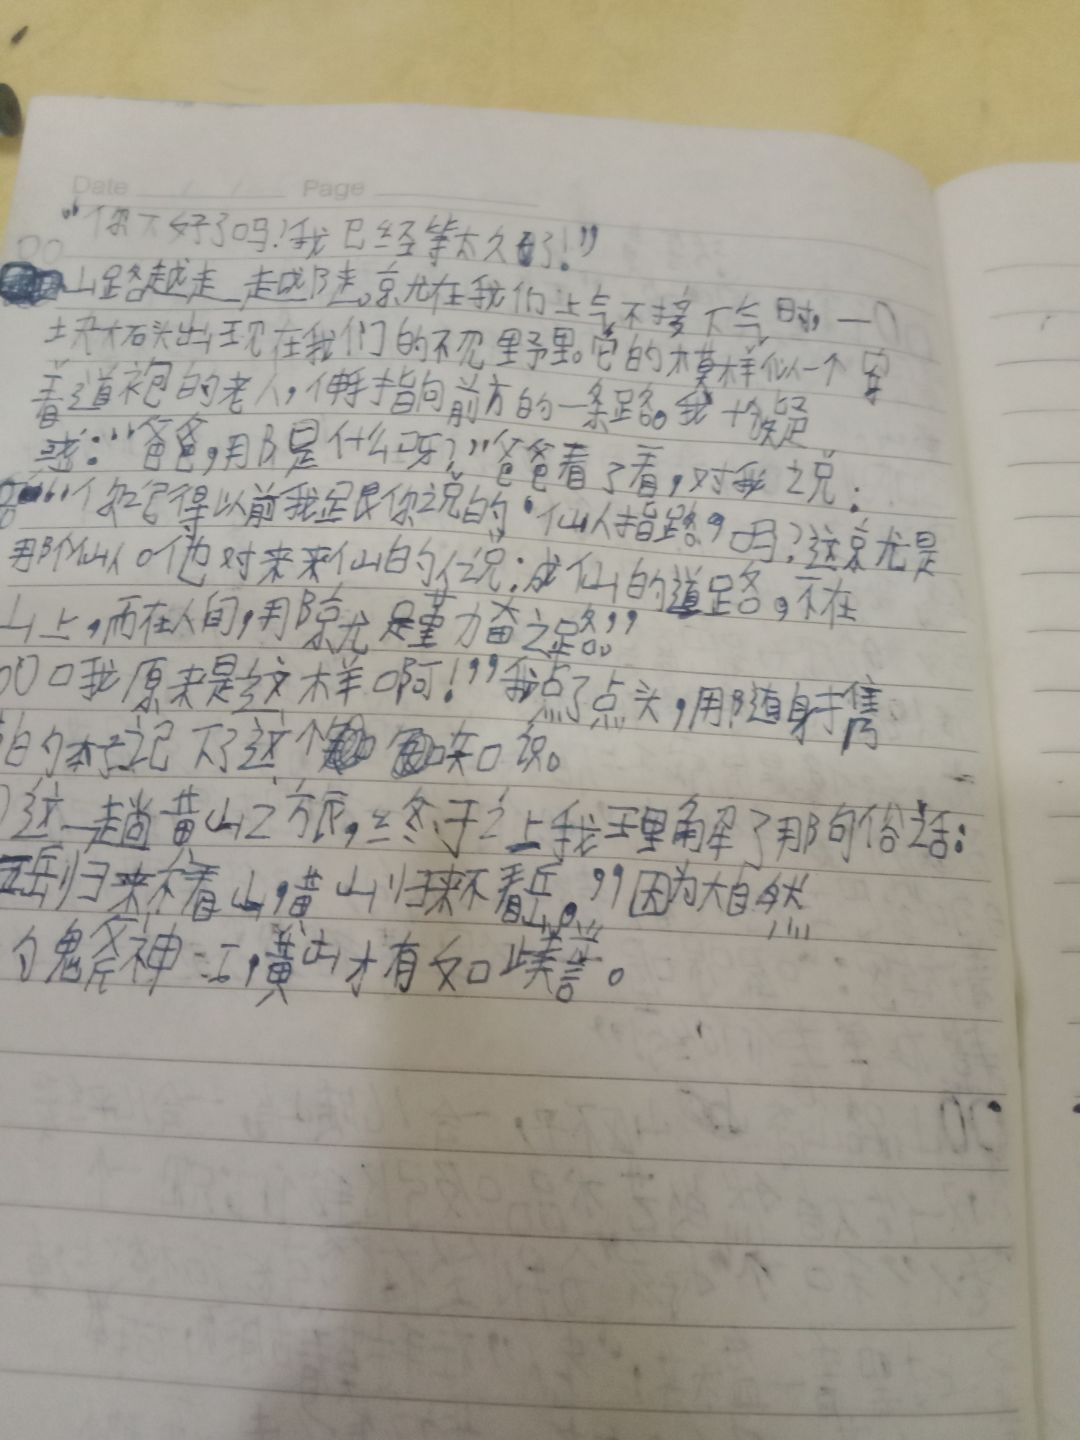 Date / / Page
“你不好了吗?我已经等太久了!”
山路越走越陡。就在我们上气不接下气时,一
块大石头出现在我们的视野里。它的模样似一个穿
着道袍的老人,伸手指向前方的一条路。我十分疑
惑:“爸爸,那是什么呀?”爸爸看了看,对我说:
“你记得以前我跟你说的‘仙人指路’吗?这就是
那个仙人 他对来 仙的 说:成仙的道路,不在
山上,而在人间,那就是勤奋之路。”
“ 我原来是这样啊!”我点了点头,用随身携
的 记下了这个 知识。
这一趟黄山之旅,终于 让我理解了那句俗话:
五岳归来不看山,黄山归来不看岳。”因为大自然
的鬼斧神工,黄山才有如此美景。